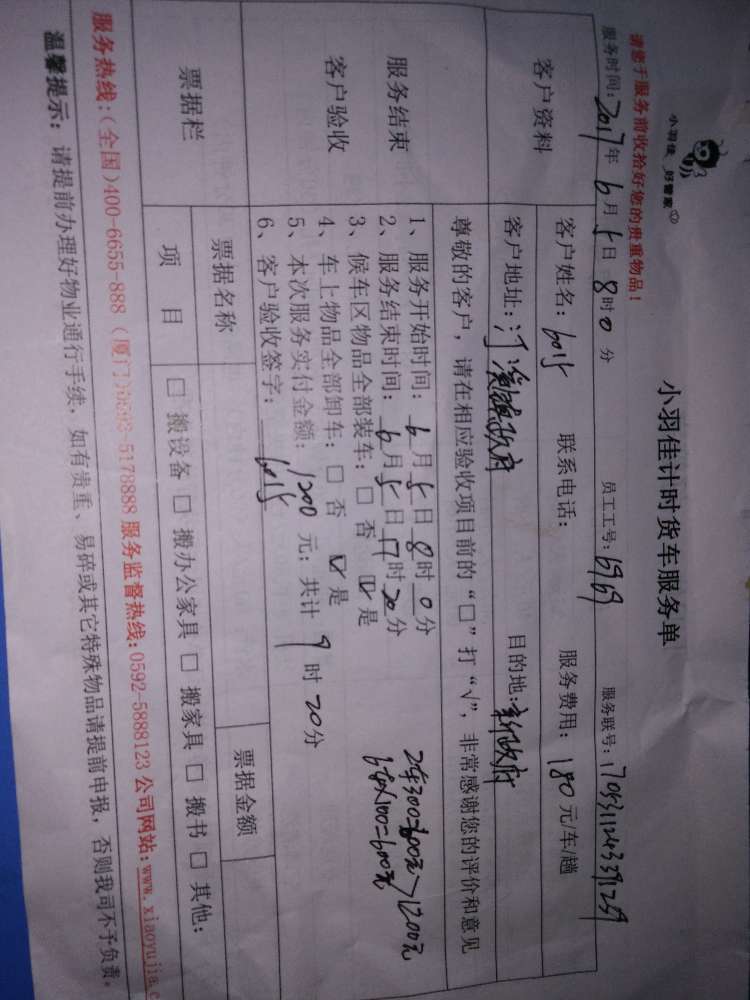 小羽佳 好管家
小羽佳计时货车服务单
请您于服务前收拾好您的贵重物品！
服务时间：2017年6月5日8时0分 员工工号：6969 服务联号：
客户资料
客户姓名： 联系电话： 服务费用：180元/车/趟
客户地址： 目的地：新政府
服务结束
客户验收
尊敬的客户，请在相应验收项目前的“□”打“√”，非常感谢您的评价和意见
1、服务开始时间：6月5日8时0分
2、服务结束时间：6月5日17时20分
3、候车区物品全部装车：□ 否 ☑ 是
4、车上物品全部卸车：□ 否 ☑ 是
5、本次服务实付金额：1200元；共计9时20分
6、客户验收签字：
2车300=600元>1200元
600元
票据栏
票据名称 票据金额
项 目 □ 搬设备 □ 搬办公家具 □ 搬家具 □ 搬书 □ 其他：
服务热线：（全国）400-6655-888（厦门）0592-5178888 服务监督热线：0592-5888123 公司网站：www.xiaoyujia.c
温馨提示：请提前办理好物业通行手续，如有贵重、易碎或其它特殊物品请提前申报，否则我司不予负责。